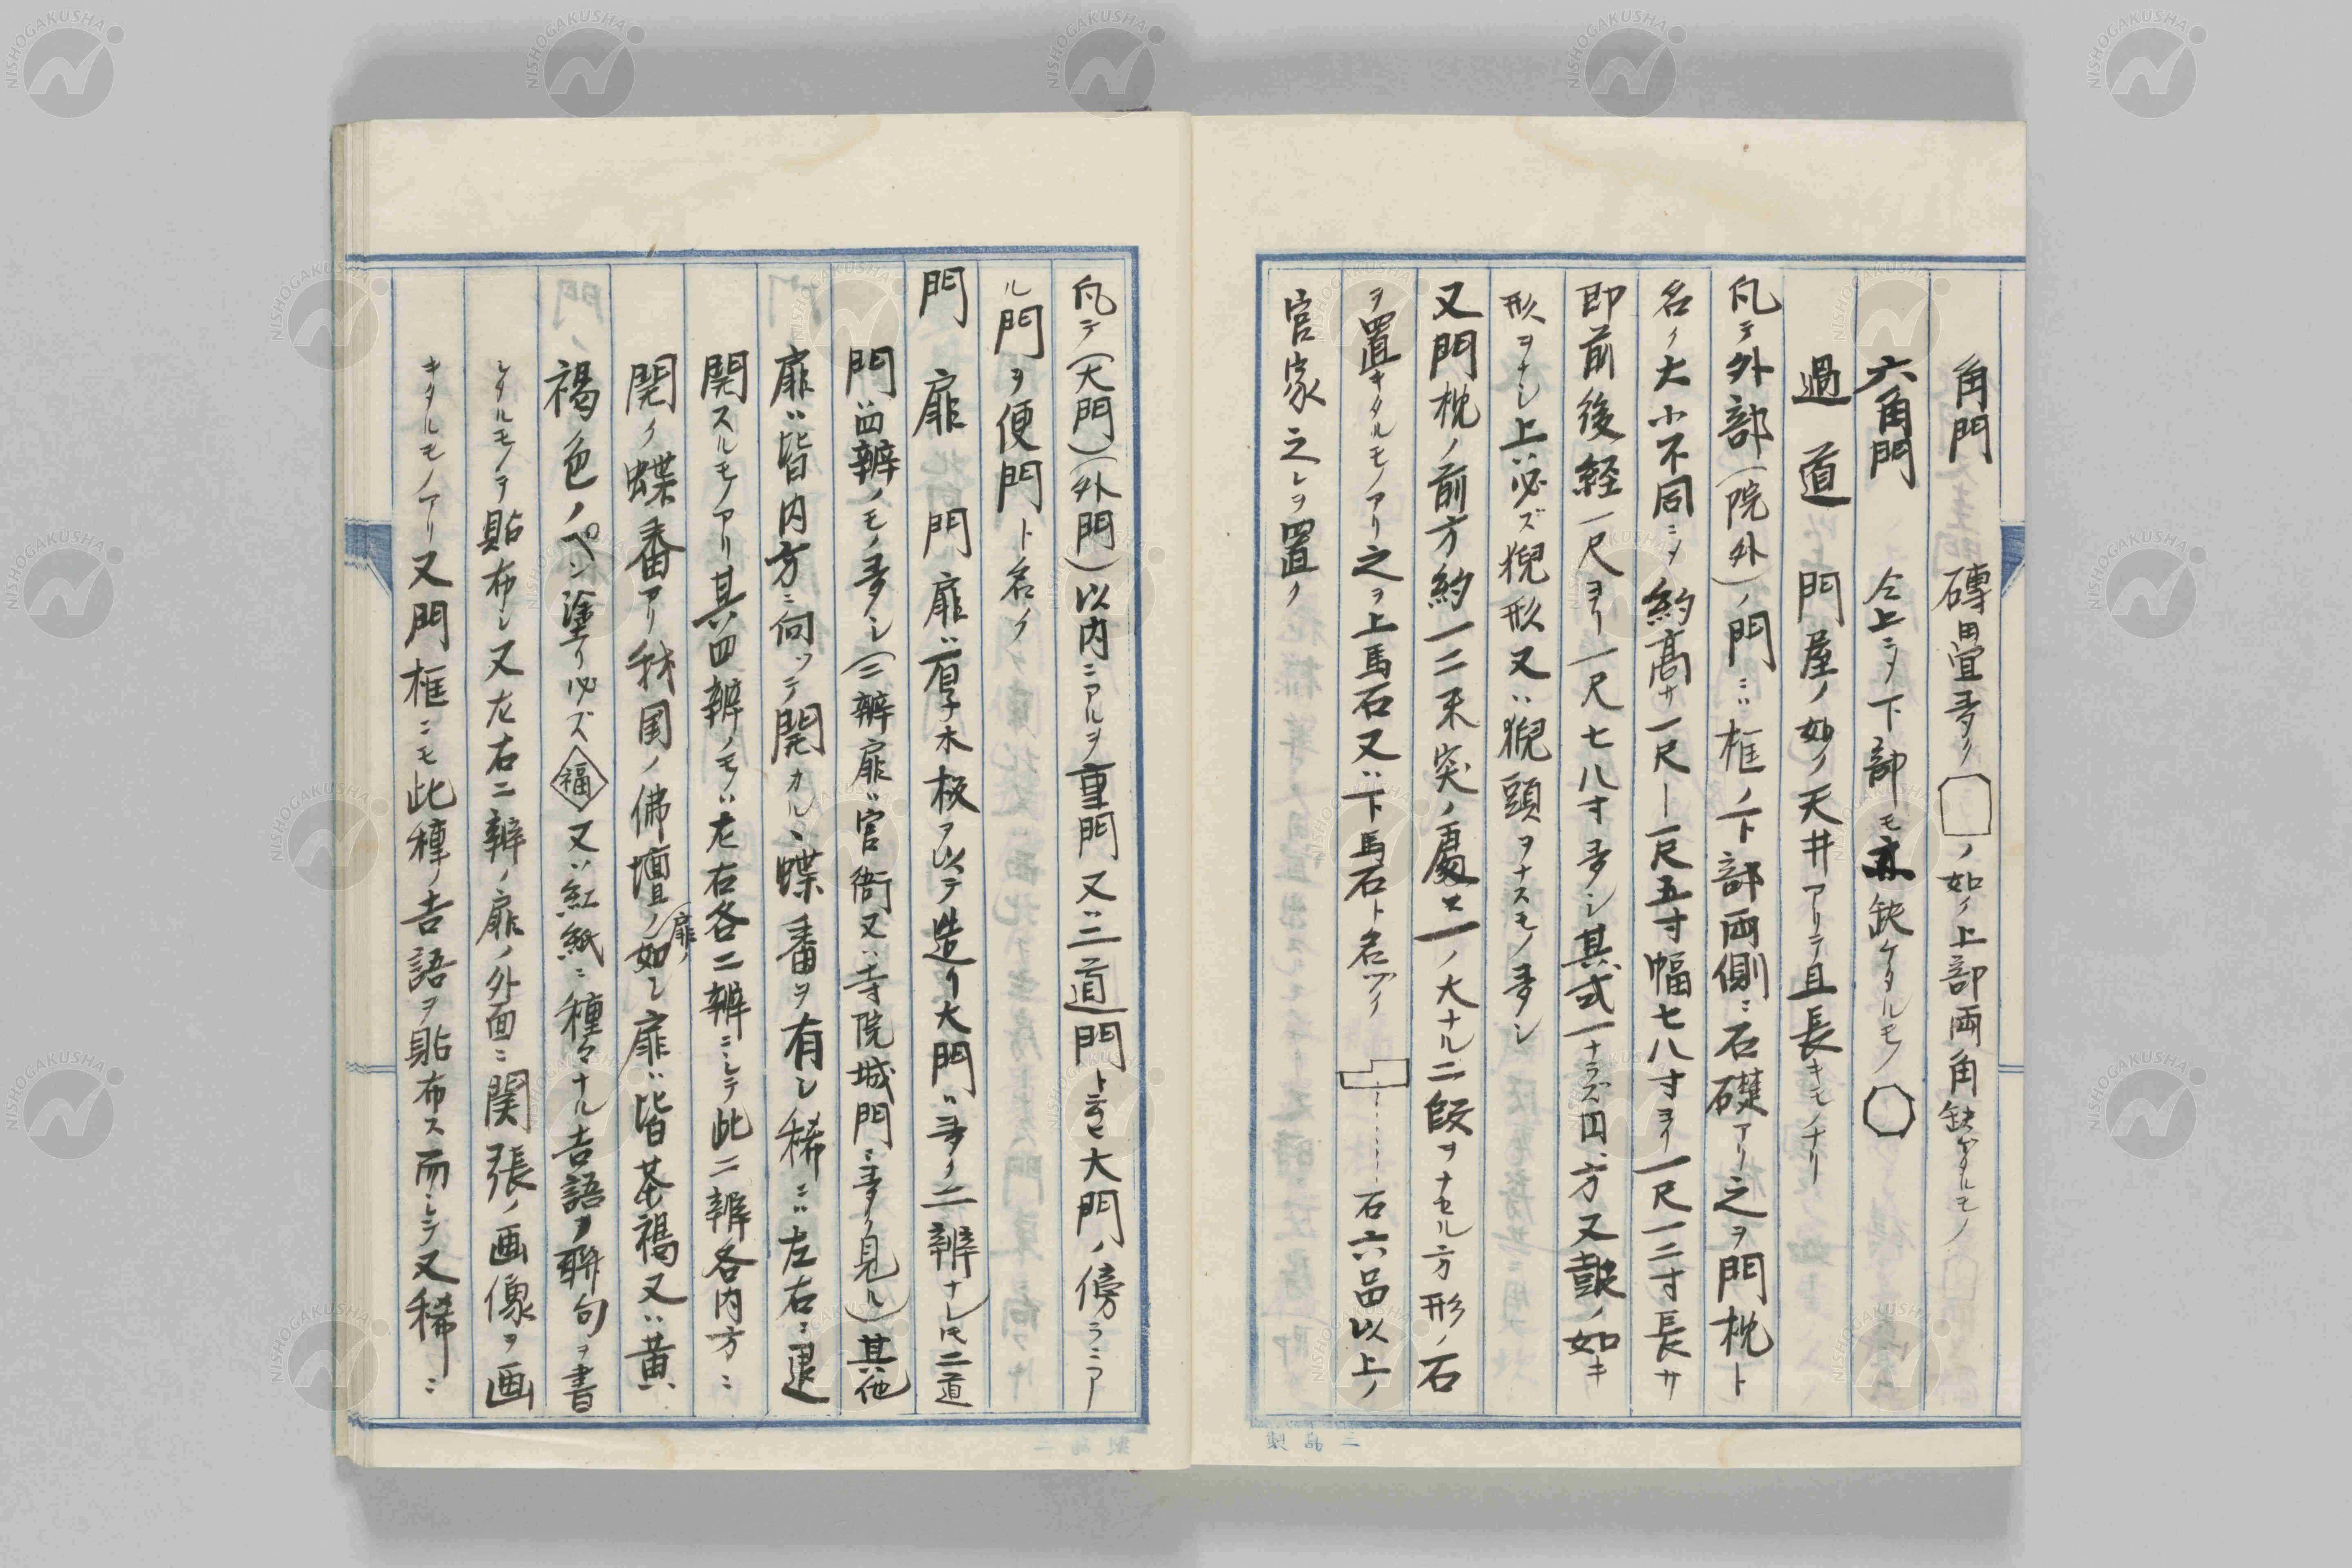 角門　磚畳多ク　ノ如ク上部両角缺ケタルモノ
六角門　仝上ニシテ下部モ亦缺ケタルモノ
過道　門屋ノ如ク天井アリテ且長キモノナリ
凡テ外部(院外)ノ門ニハ框ノ下部両側ニ石礎アリ之ヲ門枕ト
名ク大小不同ニシテ約高サ一尺ー一尺五寸幅七八寸ヨリ一尺一二寸長サ
即前後経一尺ヨリ一尺七八寸多シ其式一ナラズ円、方又鼓ノ如キ
形ヲナシ上ハ必ズ猊形又ハ猊頭ヲナスモノ多シ
又門枕ノ前方約一二米突ノ處ニ一ノ大ナル二段ヲナセル方形ノ石
ヲ置キタルモノアリ之ヲ上馬石又ハ下馬石ト名ヅク　石六品以上ノ
官家之レヲ置ク
凡テ(大門)(外門)以内ニアルヲ重門又ハ二道門ト云ヒ大門ノ傍ラニア
ル門ヲ便門ト名ク
門　扉　門扉ハ厚キ木板ヲ以テ造リ大門ハ多ク二辨ナレトモ二道
門ハ四辨ノモノ多シ(二辨扉ハ官衙又ハ寺院城門ニ多ク見ル)其他
扉ハ皆内方ニ向ツテ開カル、蝶番ヲ有シ稀ニハ左右ニ退
開スルモノアリ其四辨ノモノハ左右各二辨ニシテ此二辨各内方ニ
開ク蝶番アリ我国ノ佛壇ノ扉ノ如シ扉ハ皆茶褐又ハ黄
褐色ノペン塗リ必ズ福又ハ紅紙ニ種々ナル吉語ヲ聯句ヲ書
シタルモノヲ貼布シ又左右二辨ノ扉ノ外面ニ関張ノ画像ヲ画
キタルモノアリ又門框ニモ此種ノ吉語ヲ貼布ス而シテ又稀ニ